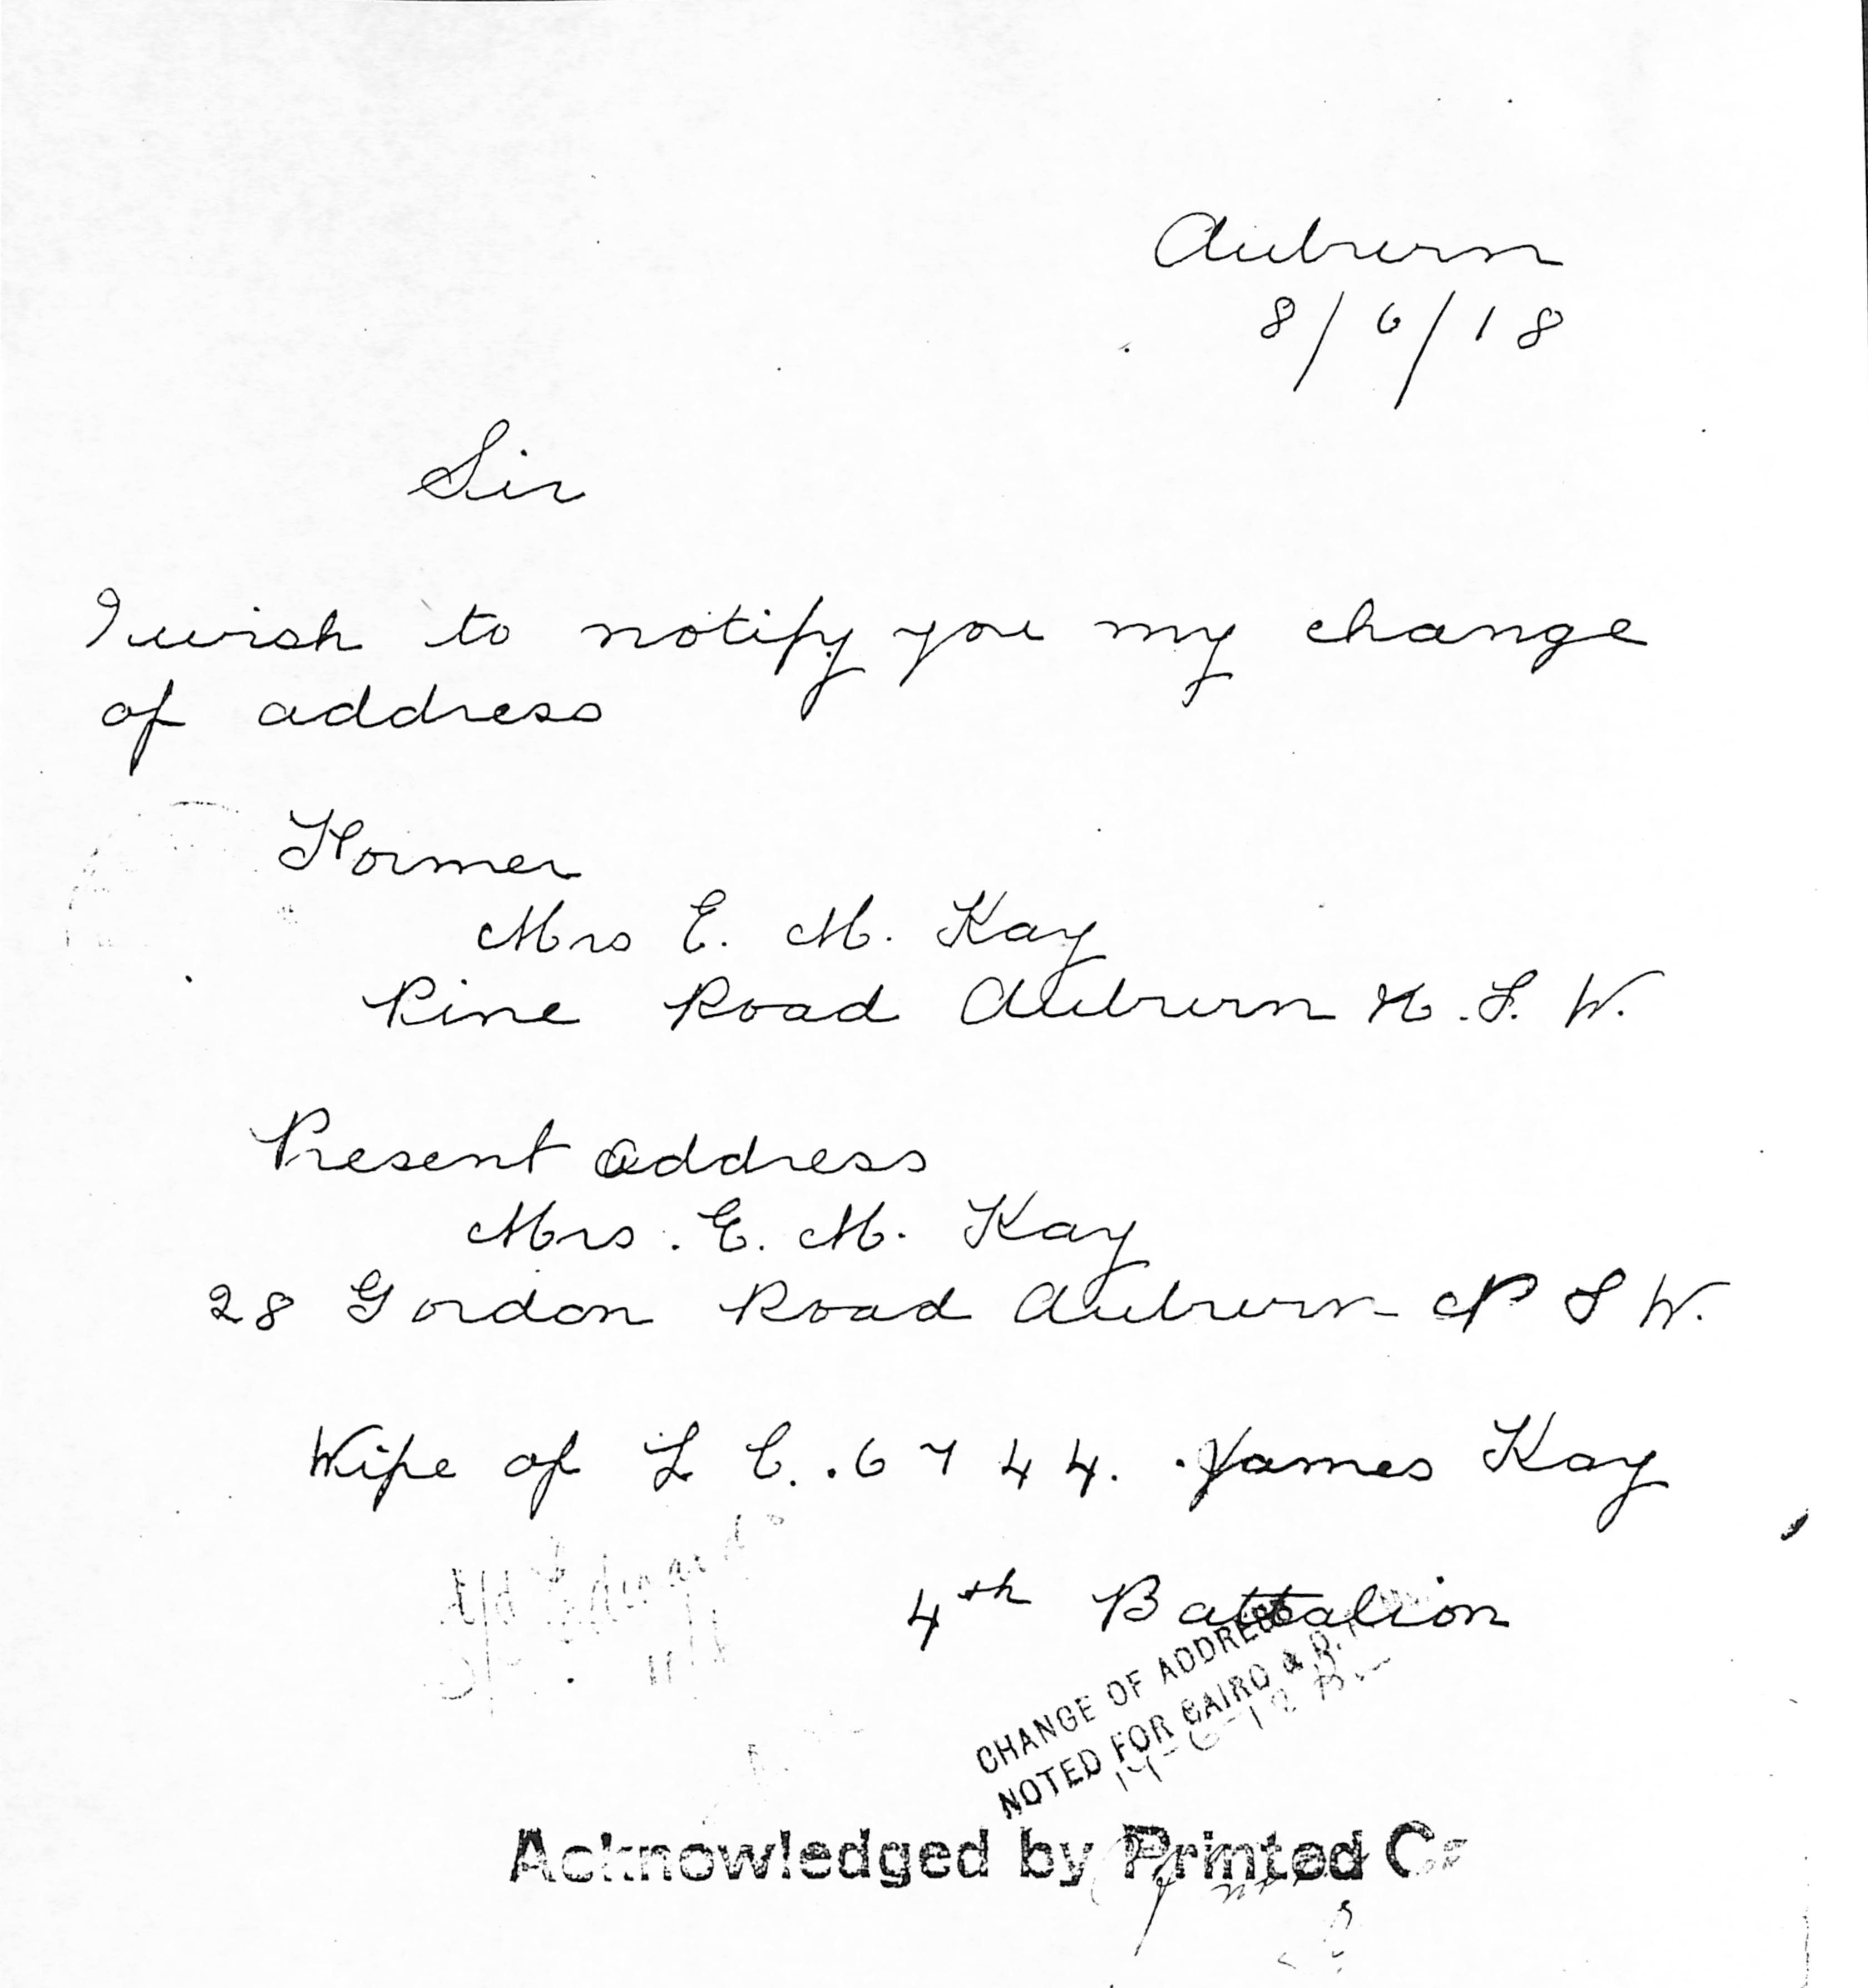 Auburn
8/6/18
Sir
I wish to notify you my change
of address
Former
Mrs E. M. Kay
Pine Road Auburn N.S.W.
Present address
Mrs. E. M. Kay
28 Gordon Road Auburn N S W.
Wife of L C. 6744. James Kay
4th Battalion
CHANGE OF ADDRESS
NOTED FOR CAIRO &
14-6-18
Acknowledged by Printed